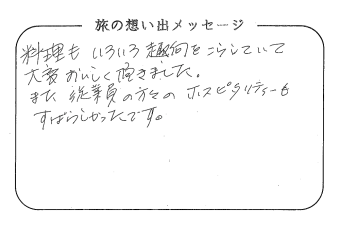 旅の想い出メッセージ
料理も いろいろ趣向をこらしていて
大変おいしく頂きました。
また 従業員の方々の ホスピタリティーも
すばらしかったです。